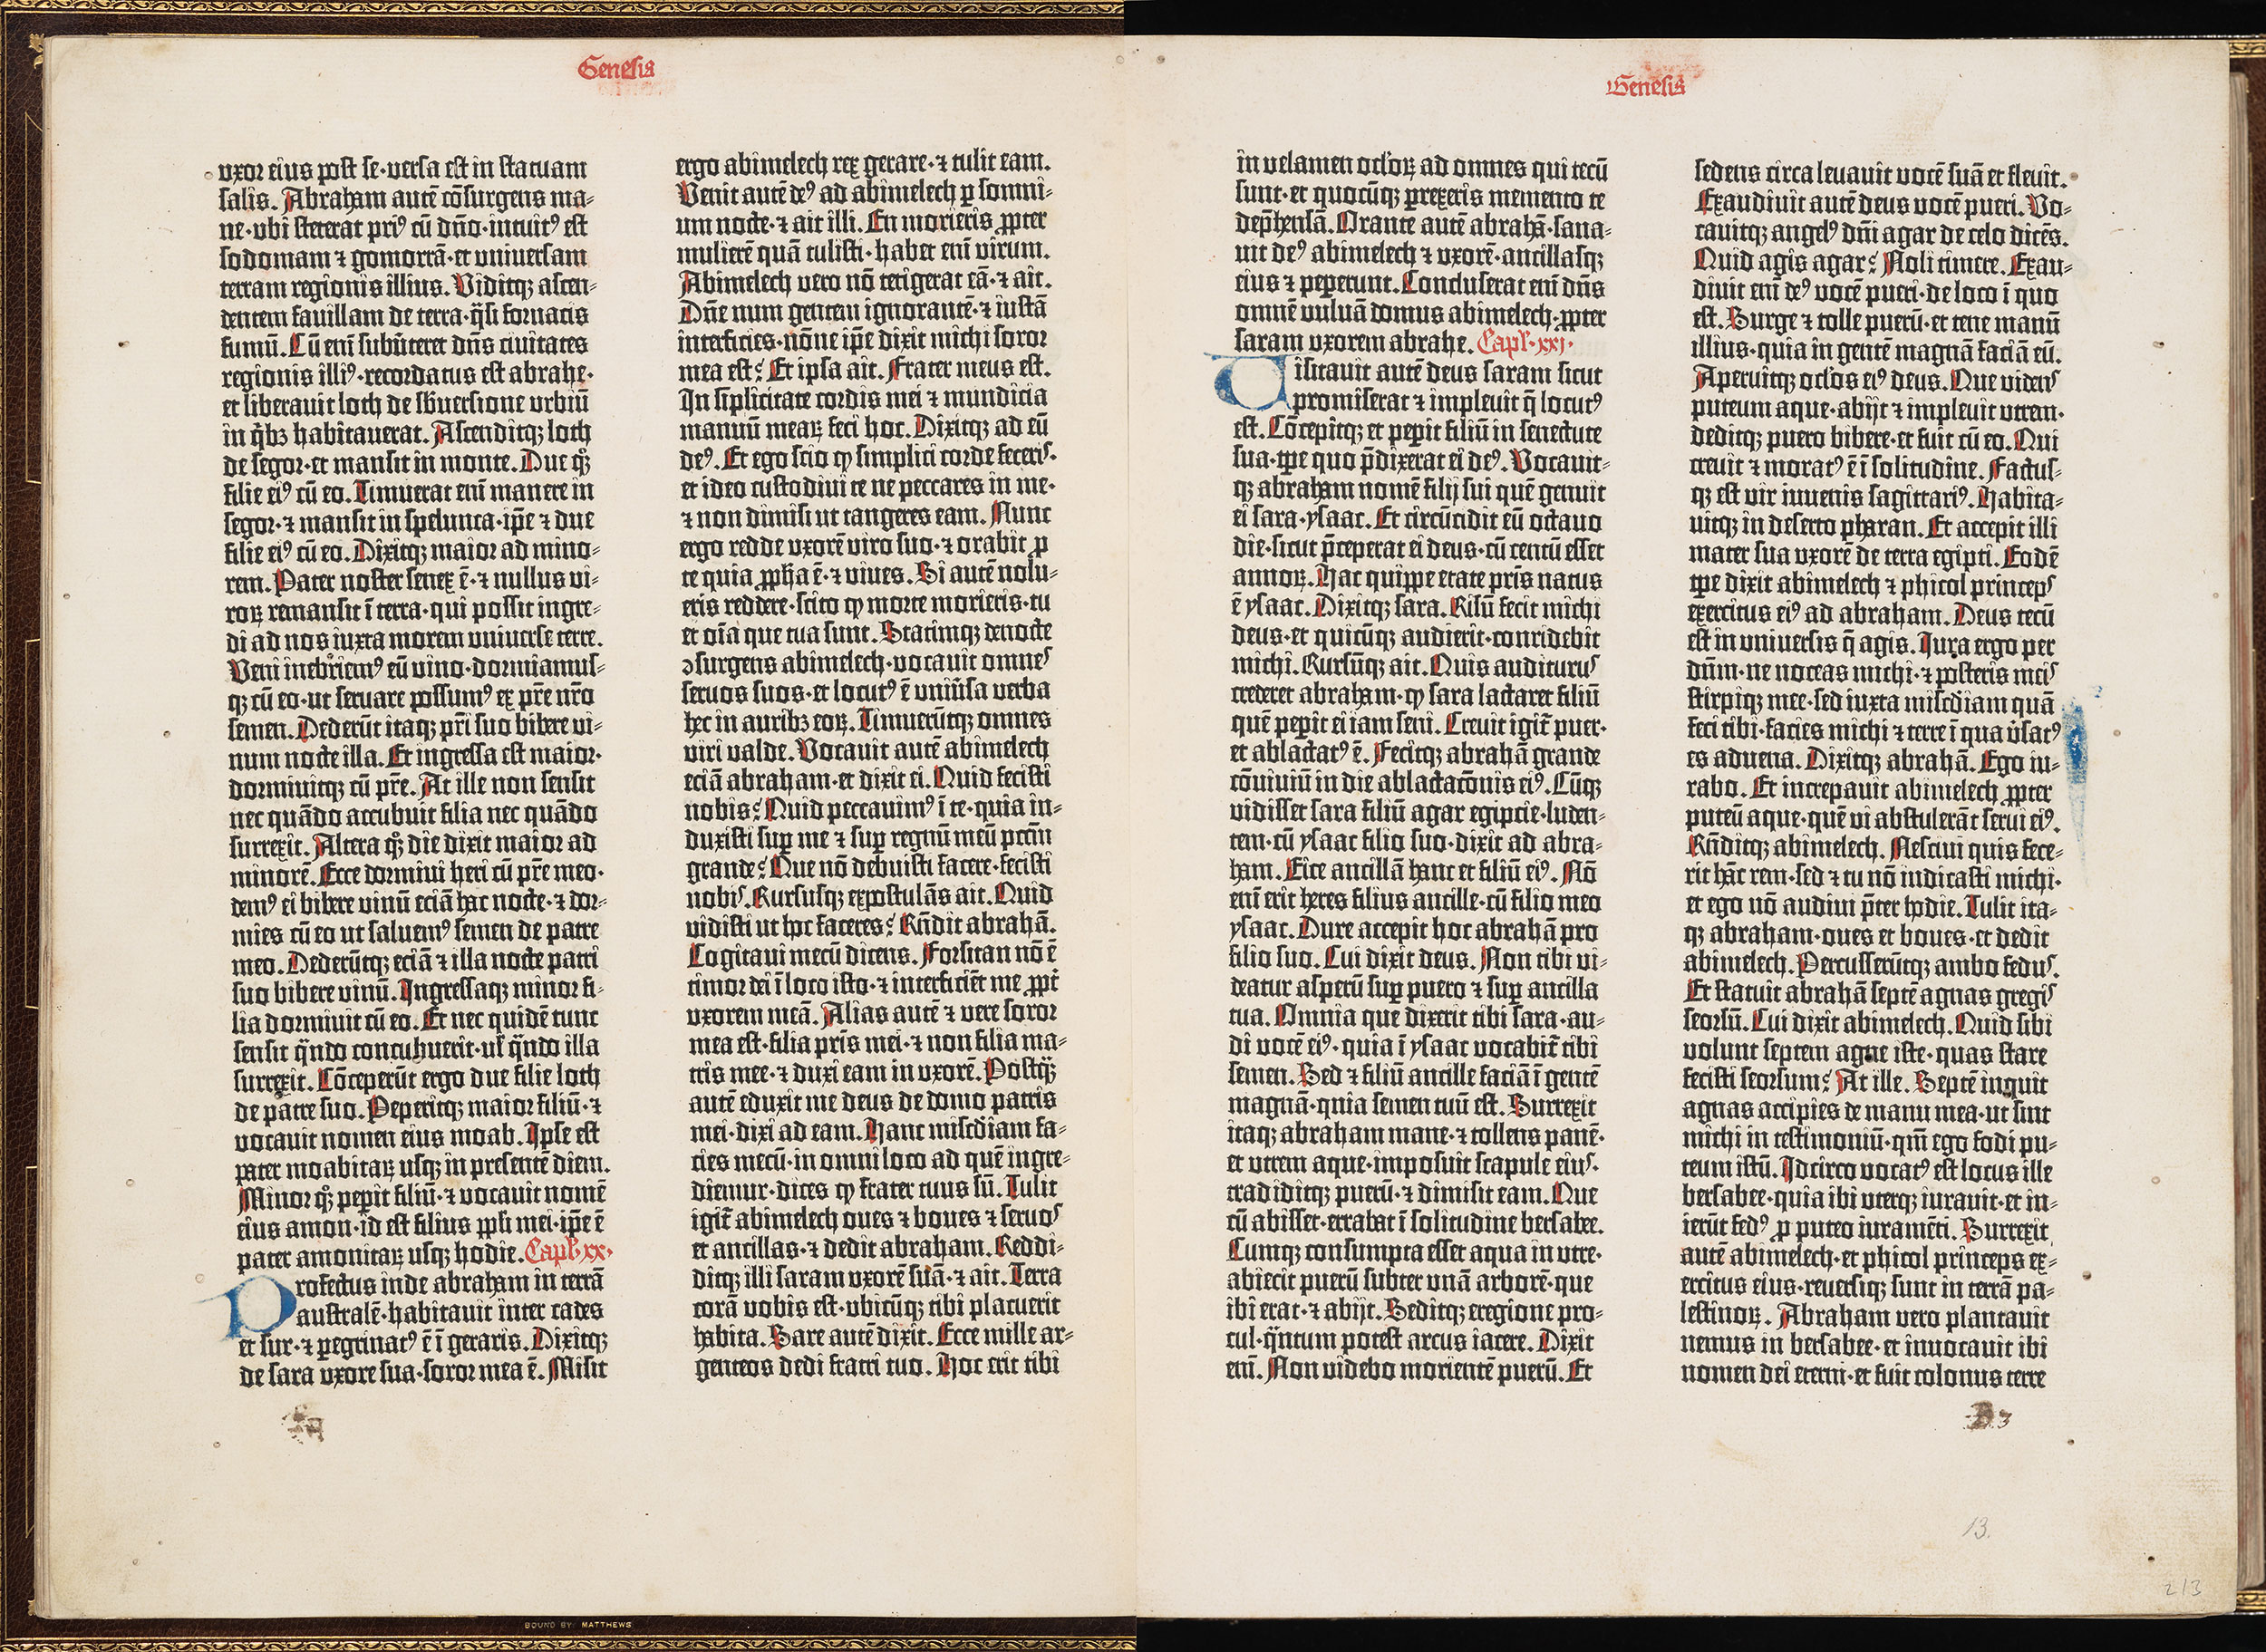 Genesis
uxor eius post se·versa est in statuam
salis. Abraham autē cōsurgens ma-
ne·ubi steterat priꝰ cū dn̄o·intuitꝰ est
sodomam ⁊ gomorrā·et universam
terram regionis illius. Viditqꝫ ascen-
dentem favillam de terra·q̄si fornacis
fumū. Cū enī subūteret dn̄s civitates
regionis illiꝰ·recordatus est abrahe·
et liberavit loth de sbūersione urbiū
in q̇bꝫ habitaverat. Ascenditqꝫ loth
de segor·et mansit in monte. Due qꝫ̊
filie eiꝰ cū eo. Timuerat enī manere in
segor·⁊ mansit in spelunca·ip̄e ⁊ due
filie eiꝰ cū eo. Dixitqꝫ maior ad mino-
rem. Pater noster senex ē·⁊ nullus vi-
roꝝ remansit ī terra·qui possit ingre-
di ad nos iuxta morem universe terre.
Veni inebriemꝰ eū vino·dormiamus-
qꝫ cū eo·ut servare possumꝰ ex pr̄e nr̄o
semen. Dederūt itaqꝫ pr̄i suo bibere vi-
num nocte illa. Et ingressa est maior·
dormivitqꝫ cū pr̄e. At ille non sensit
nec quādo accubuit filia nec quādo
surrexit. Altera qꝫ̊ die dixit maior ad
minorē. Ecce dormivi heri cū pr̄e meo·
demꝰ ei bibere vinū eciā hac nocte·⁊ dor-
mies cū eo ut salvemꝰ semen de patre
meo. Dederūtqꝫ eciā ⁊ illa nocte patri
suo bibere vinū. Ingressaqꝫ minor fi-
lia dormivit cū eo. Et nec quidē tunc
sensit q̄ndo concubuerit·ul̄ q̄ndo illa
surrexit. Cōceperūt ergo due filie loth
de patre suo. Peperitqꝫ maior filiū·⁊
vocavit nomen eius moab. Ipse est
pater moabitaꝝ usqꝫ in presentē diem.
Minor qꝫ̊ pepit filiū·⁊ vocavit nomē
eius amon·id est filius ppl̄i mei·ip̄e ē
pater amonitaꝝ usqꝫ hodie. Capl̄·xx·
Profectus inde abraham in terrā
australē·habitavit inter cades
et sur·⁊ ꝑegrinatꝰ ē ī geraris. Dixitqꝫ
de sara uxore sua·soror mea ē. Misit
ergo abimelech rex gerare·⁊ tulit eam.
Venit autē deꝰ ad abimelech ꝑ somni-
um nocte·⁊ ait illi. En morieris ꝓpter
mulierē quā tulisti·habet enī virum.
Abimelech vero nō tetigerat eā·⁊ ait.
Dn̄e num gentem ignorantē·⁊ iustā
interficies·nōne ip̄e dixit michi soror
mea est? Et ipsa ait. Frater meus est.
In siplicitate cordis mei ⁊ mundicia
manuū meaꝝ feci hoc. Dixitqꝫ ad eū
deꝰ. Et ego scio ꝙ simplici corde feceris·
et ideo custodivi te ne peccares in me·
⁊ non dimisi ut tangeres eam. Nunc
ergo redde uxorē viro suo·⁊ orabit ꝓ
te quia ꝓph̄a ē·⁊ vives. Si autē nolu-
eris reddere·scito ꝙ morte morieris·tu
et oīa que tua sunt. Statimqꝫ denocte
ↄsurgens abimelech·vocavit omnes
servos suos·et locutꝰ ē univsa verba
hec in auribꝫ eoꝝ. Timuerūtqꝫ omnes
viri valde. Vocavit autē abimelech
eciā abraham·et dixit ei. Quid fecisti
nobis? Quid peccavimꝰ ī te·quia in-
duxisti suꝑ me ⁊ suꝑ regnū meū pctm̄
grande? Que nō debuisti facere·fecisti
nobis. Rursusqꝫ expostulās ait. Quid
vidisti ut hoc faceres? Rn̄dit abrahā.
Cogitavi mecū dicens. Forsitan nō ē
timor dei ī loco isto·⁊ interficiēt me ꝓpt̄
uxorem meā. Alias autē ⁊ vere soror
mea est·filia pr̄is mei·⁊ non filia ma-
tris mee·⁊ duxi eam in uxorē. Postq̄ꝫ
autē eduxit me deus de domo patris
mei·dixi ad eam. Hanc mis̄cdiam fa-
cies mecū·in omni loco ad quē ingre-
diemur·dices ꝙ frater tuus sū. Tulit
igit̄ abimelech oves ⁊ boves ⁊ servos
et ancillas·⁊ dedit abraham. Reddi-
ditqꝫ illi saram uxorē suā·⁊ ait. Terra
corā vobis est·ubicūqꝫ tibi placuerit
habita. Sare autē dixit. Ecce mille ar-
genteos dedi fratri tuo. Hoc erit tibi
Genesis
in velamen ocl̄oꝝ ad omnes qui tecū
sunt·et quocūqꝫ ꝑrexeris memento te
dep̄hensā. Orante autē abrahā·sana-
vit deꝰ abimelech ⁊ uxorē·ancillasqꝫ
eius ⁊ peperunt. Concluserat enī dn̄s
omnē vulvā domus abimelech·ꝓpter
saram uxorem abrahe. Capl̄·xxi·
Visitavit autē deus saram sicut
promiserat ⁊ implevit q̄ locutꝰ
est. Cōcepitqꝫ et pepit filiū in senectute
sua·tp̄e quo p̄dixerat ei deꝰ. Vocavit-
qꝫ abraham nomē filij sui quē genuit
ei sara·ysaac. Et circūcidit eū octavo
die·sicut p̄ceperat ei deus·cū centū esset
annoꝝ. Hac quippe etate pr̄is natus
ē ysaac. Dixitqꝫ sara. Risū fecit michi
deus·et quicūqꝫ audierit·conridebit
michi. Rursūqꝫ ait. Quis auditurus
crederet abraham·ꝙ sara lactaret filiū
quē pepit ei iam seni. Crevit igit̄ puer·
et ablactatꝰ ē. Fecitqꝫ abrahā grande
cōviviū in die ablactacōnis eiꝰ. Cūqꝫ
vidisset sara filiū agar egipcie·luden-
tem·cū ysaac filio suo·dixit ad abra-
ham. Eice ancillā hanc et filiū eiꝰ. Nō
enī erit heres filius ancille·cū filio meo
ysaac. Dure accepit hoc abrahā pro
filio suo. Cui dixit deus. Non tibi vi-
deatur asperū suꝑ puero ⁊ suꝑ ancilla
tua. Omnia que dixerit tibi sara·au-
di vocē eiꝰ·quia ī ysaac vocabit̄ tibi
semen. Sed ⁊ filiū ancille faciā ī gentē
magnā·quia semen tuū est. Surrexit
itaqꝫ abraham mane·⁊ tollens panē·
et utrem aque·imposuit scapule eius·
tradiditqꝫ puerū·⁊ dimisit eam. Que
cū abisset·errabat ī solitudine bersabee.
Cumqꝫ consumpta esset aqua in utre·
abiecit puerū subter unā arborē·que
ibi erat·⁊ abijt. Seditqꝫ eregione pro-
cul·q̄ntum potest arcus iacere. Dixit
enī. Non videbo morientē puerū. Et
sedens circa levavit vocē suā et flevit.
Exaudivit autē deus vocē pueri. Vo-
cavitqꝫ angelꝰ dn̄i agar de celo dicēs.
Quid agis agar? Noli timere. Exau-
divit enī deꝰ vocē pueri·de loco ī quo
est. Surge ⁊ tolle puerū·et tene manū
illius·quia in gentē magnā faciā eū.
Aperuitqꝫ ocl̄os eiꝰ deus. Que videns
puteum aque·abijt ⁊ implevit utrem·
deditqꝫ puero bibere·et fuit cū eo. Qui
crevit ⁊ moratꝰ ē ī solitudine. Factus-
qꝫ est vir iuvenis sagittariꝰ. Habita-
vitqꝫ in deserto pharan. Et accepit illi
mater sua uxorē de terra egipti. Eodē
tp̄e dixit abimelech ⁊ phicol princeps
exercitus eiꝰ ad abraham. Deus tecū
est in universis q̄ agis. Iura ergo per
dn̄m·ne noceas michi·⁊ posteris meis
stirpiqꝫ mee·sed iuxta mis̄cdiam quā
feci tibi·facies michi ⁊ terre ī qua v̄satꝰ
es advena. Dixitqꝫ abrahā. Ego iu-
rabo. Et increpavit abimelech ꝓpter
puteū aque·quē vi abstulerāt servi eiꝰ.
Rn̄ditqꝫ abimelech. Nescivi quis fece-
rit hāc rem·sed ⁊ tu nō indicasti michi·
et ego nō audivi p̄ter hodie. Tulit ita-
qꝫ abraham·oves et boves·et dedit
abimelech. Percusserūtqꝫ ambo fedus.
Et statuit abrahā septē agnas gregis
seorsū. Cui dixit abimelech. Quid sibi
volunt septem agne iste·quas stare
fecisti seorsum? At ille. Septē inquit
agnas accipies de manu mea·ut sint
michi in testimoniū·qm̄ ego fodi pu-
teum istū. Idcirco vocatꝰ est locus ille
bersabee·quia ibi uterqꝫ iuravit·et in-
ierūt fedꝰ ꝓ puteo iuramēti. Surrexit
autē abimelech·et phicol princeps ex-
ercitus eius·reversiqꝫ sunt in terrā pa-
lestinoꝝ. Abraham vero plantavit
nemus in bersabee·et invocavit ibi
nomen dei eterni·et fuit colonus terre
13.
213
BOUND BY MATTHEWS